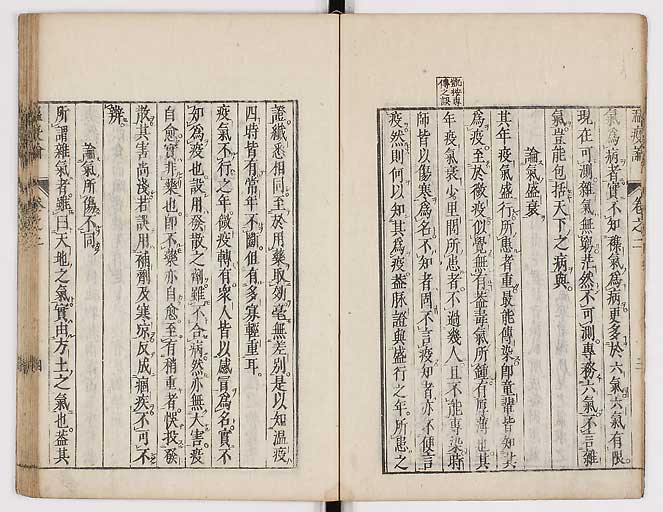 溫疫論 卷之二 三
氣爲病者實不知雜氣爲病更多於六氣六氣有限
現在可測雜氣無窮茫然不可測專務六氣不言雜
氣豈能包括天下之病與
論氣盛衰
其年疫氣盛行所患者重最能傳染卽童輩皆知其
爲疫至於微疫似覺無有蓋毒氣所鍾有厚薄也其
年疫氣衰少里閭所患者不過幾人且不能專染時
師皆以傷寒爲名不知者固不言疫知者亦不便言
疫然則何以知其爲疫蓋脉證與盛行之年所患之
證纖悉相同至於用藥取効毫無差別是以知溫疫
四時皆有常年不斷但有多寡輕重耳
疫氣不行之年微疫轉有衆人皆以感冒爲名實不
知爲疫也設用發散之劑雖不合病然亦無大害疫
自愈實非藥也卽不藥亦自愈至有稍重者悞投發
散其害尚淺若誤用補劑及寒凉反成痼疾不可不
辨
論氣所傷不同
所謂雜氣者雖曰天地之氣實由方土之氣也蓋其